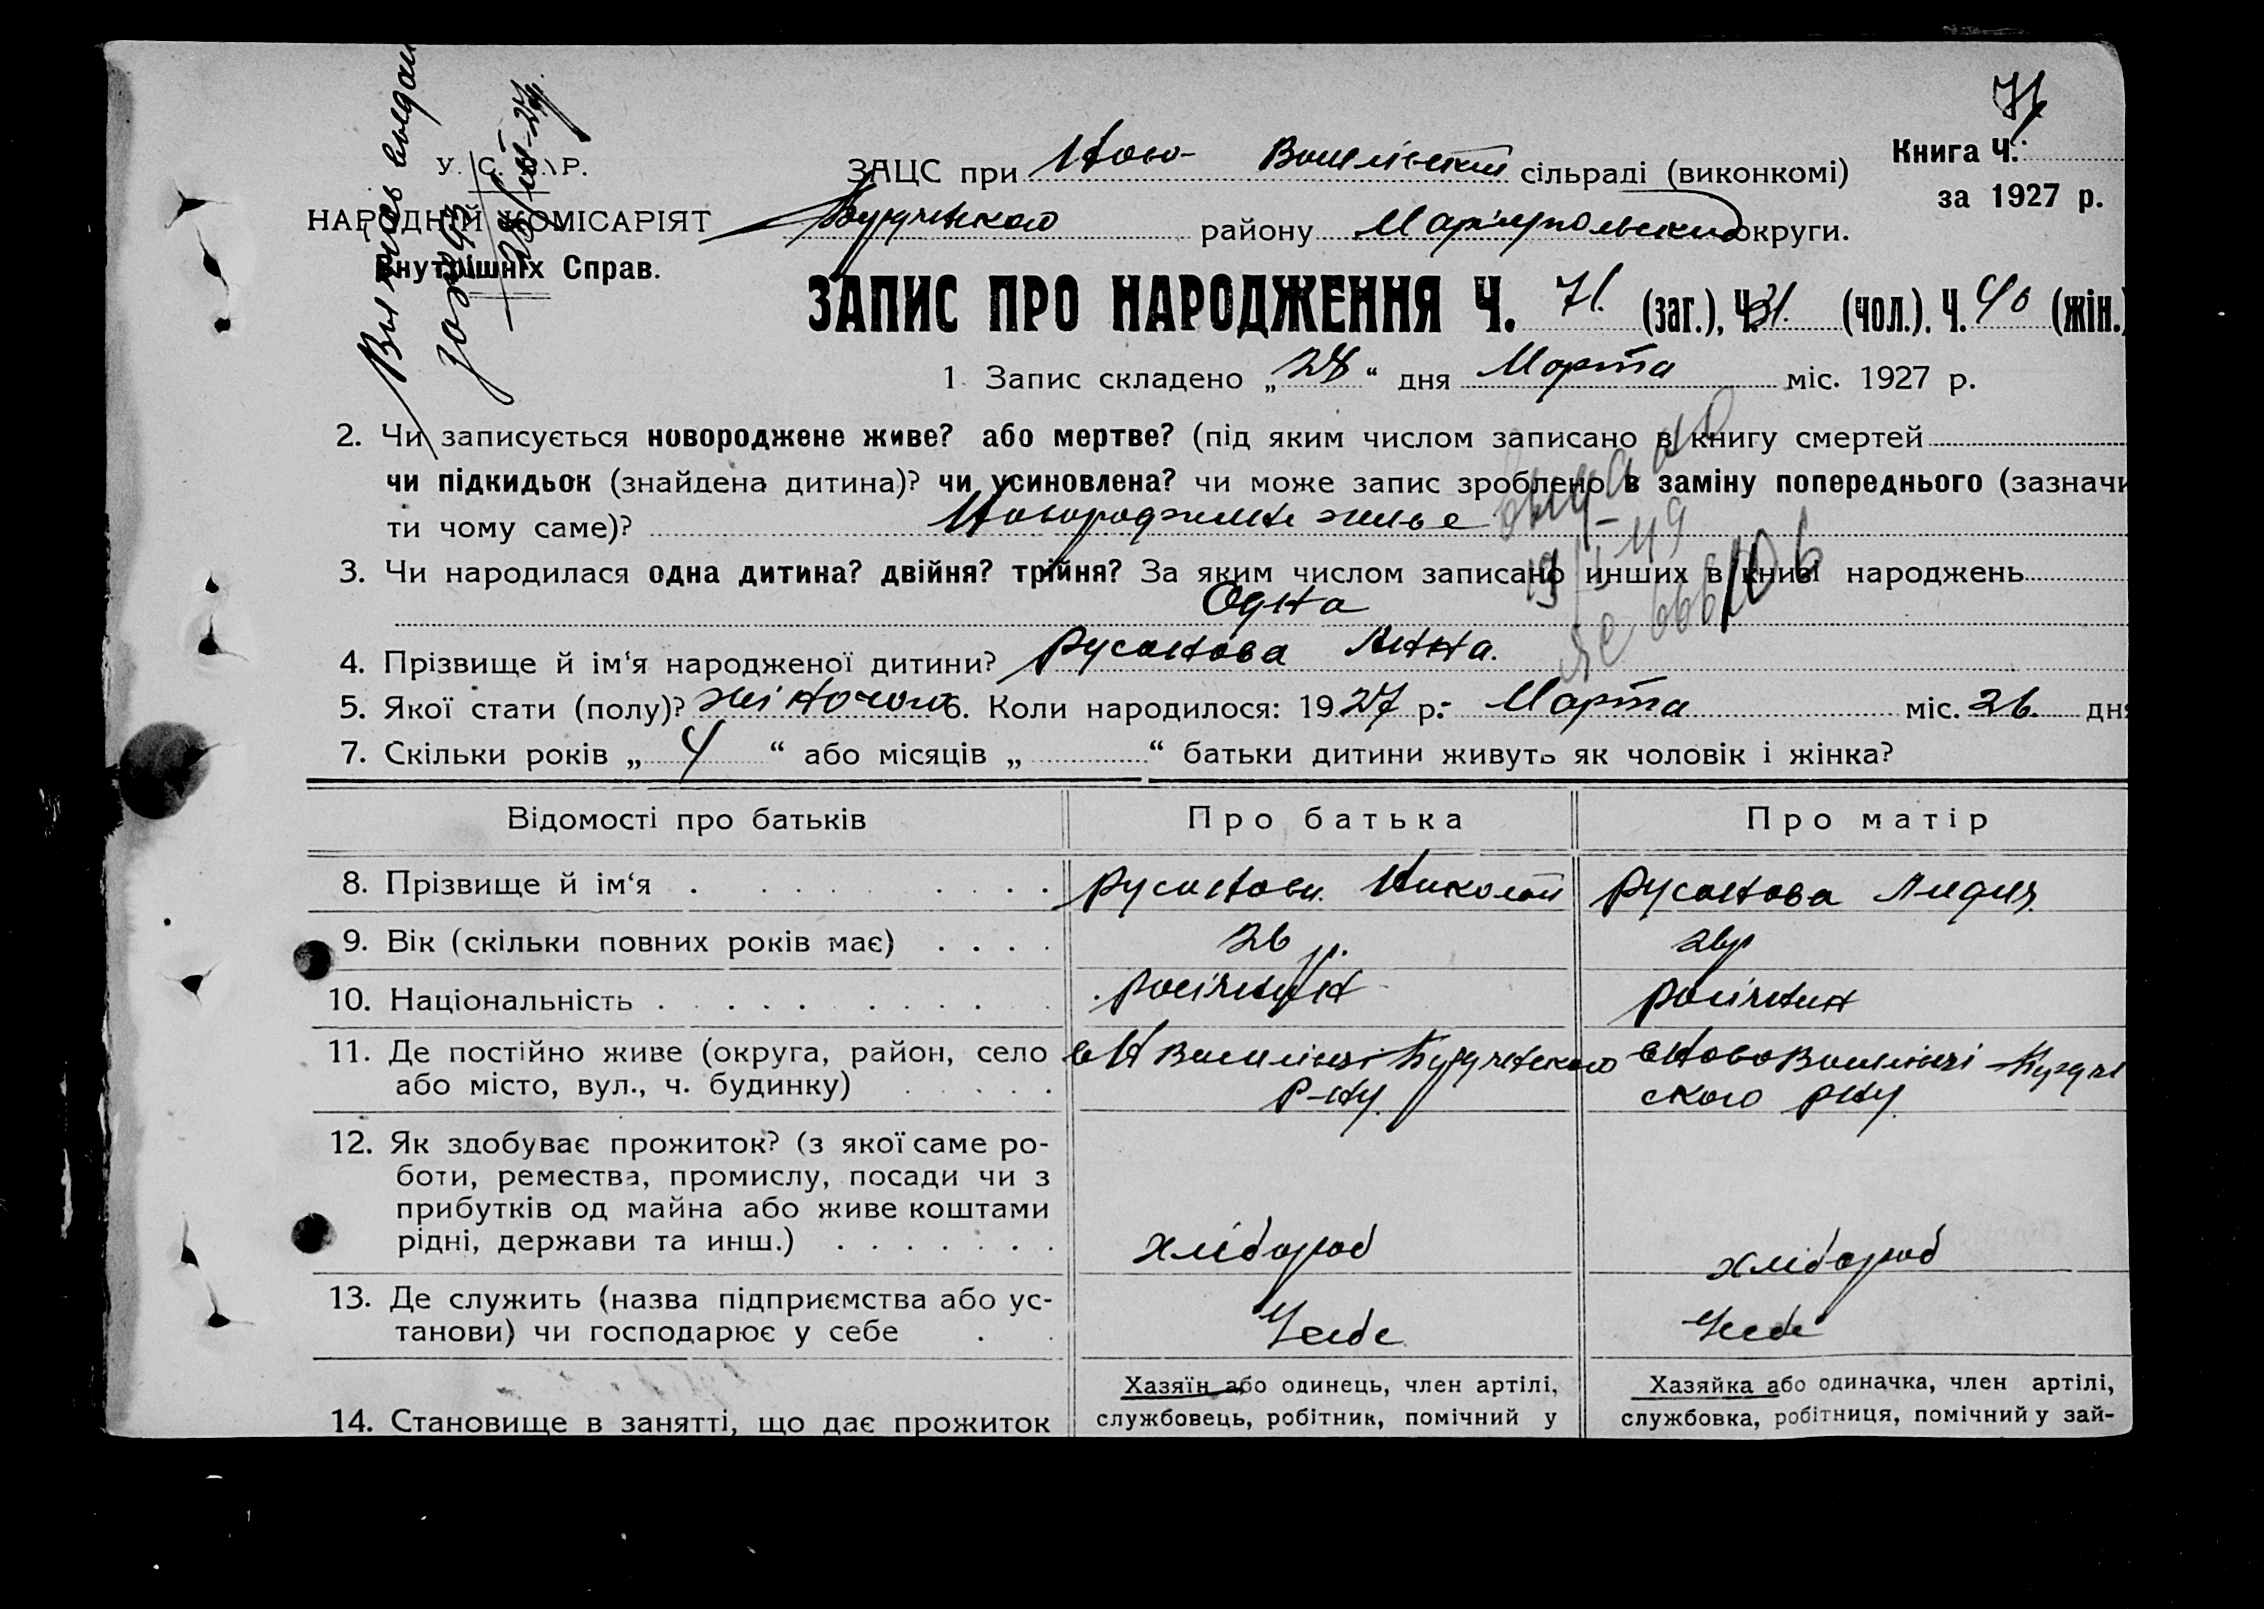 71
У. С. Р. Р.
НАРОДНІЙ КОМІСАРІЯТ
Внутрішніх Справ.
ЗАЦС при Ново- сільраді (виконкомі)
району Маріупольської округи.
Книга Ч.
за 1927 р.
ЗАПИС ПРО НАРОДЖЕННЯ Ч. 71. (заг.), Ч. 31. (чол.). Ч. 40 (жін.)
1. Запис складено „28“ дня Марта міс. 1927 р.
2. Чи записується новороджене живе? або мертве? (під яким числом записано в книгу смертей
чи підкидьок (знайдена дитина)? чи усиновлена? чи може запис зроблено в заміну попереднього (зазначи
ти чому саме)? Новороджене живе
3. Чи народилася одна дитина? двійня? трійня? За яким числом записано инших в книзі народжень
Одна
4. Прізвище й ім‘я народженої дитини? Русанова Анна.
5. Якої стати (полу)? жіночого 6. Коли народилося: 1927 р. Марта міс. 26. дня
7. Скільки років „ 4 “ або місяців „ “ батьки дитини живуть як чоловік і жінка?
Відомості про батьків Про батька Про матір
8. Прізвище й ім‘я Русанов Николай Русанова Лидия
9. Вік (скільки повних років має) 26 р. 26 р
10. Національність росіянин росіянин
11. Де постійно живе (округа, район, село
або місто, вул., ч. будинку) р-ну ского р-ну
12. Як здобуває прожиток? (з якої саме ро-
боти, ремества, промислу, посади чи з
прибутків од майна або живе коштами
рідні, держави та инш.) хлібороб хлібороб
13. Де служить (назва підприємства або ус-
танови) чи господарює у себе У себе У себе
Хазяїн або одинець, член артілі, Хазяйка або одиначка, член артілі,
14. Становище в занятті, що дає прожиток службовець, робітник, помічний у службовка, робітниця, помічний у зай-